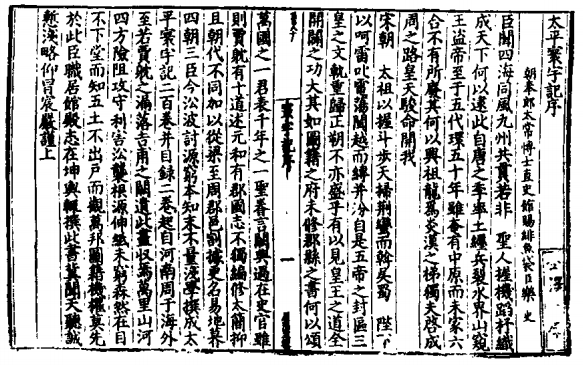 太平寰宇記序
朝奉郎太常博士直史館賜緋魚袋臣樂史
臣聞四海同風九州共貫若非 聖人握機蹈杼織
成天下何以逮此自唐之季率土纏兵裂水界山窺
王盜帝至于五代環五十年雖奄有中原而未家六
合不有所廢其何以興祖龍爲炎漢之梯獨夫啓成
周之路皇天駿命開我
宋朝 太祖以握斗步天掃荆蠻而斡吳蜀 陛下
以呵雷叱電蕩閩越而縛并汾自是五帝之封區三
皇之文軌重歸正朔不亦盛乎有以見皇王之道全
開闢之功大其如圖籍之府未修郡縣之書何以頌
寰宇記序
一
萬國之一君表千年之一聖眷言闕典過在史官雖
則賈耽有十道述元和有郡國志不獨編修太簡抑
且朝代不同加以從梁至周郡邑割據更名易地暮
四朝三臣今沿波討源窮本知末不量淺學撰成太
平寰宇記二百卷并目録二卷起自河南周于海外
至若賈耽之漏落吉甫之闕遺此盡收焉萬里山河
四方險阻攻守利害沿襲根源伸紙未窮森然在目
不下堂而知五土不出戶而觀萬邦圖籍機權莫先
於此臣職居館殿志在坤輿輒撰此書冀聞天聽誠
慙淺略仰冒宸嚴謹上